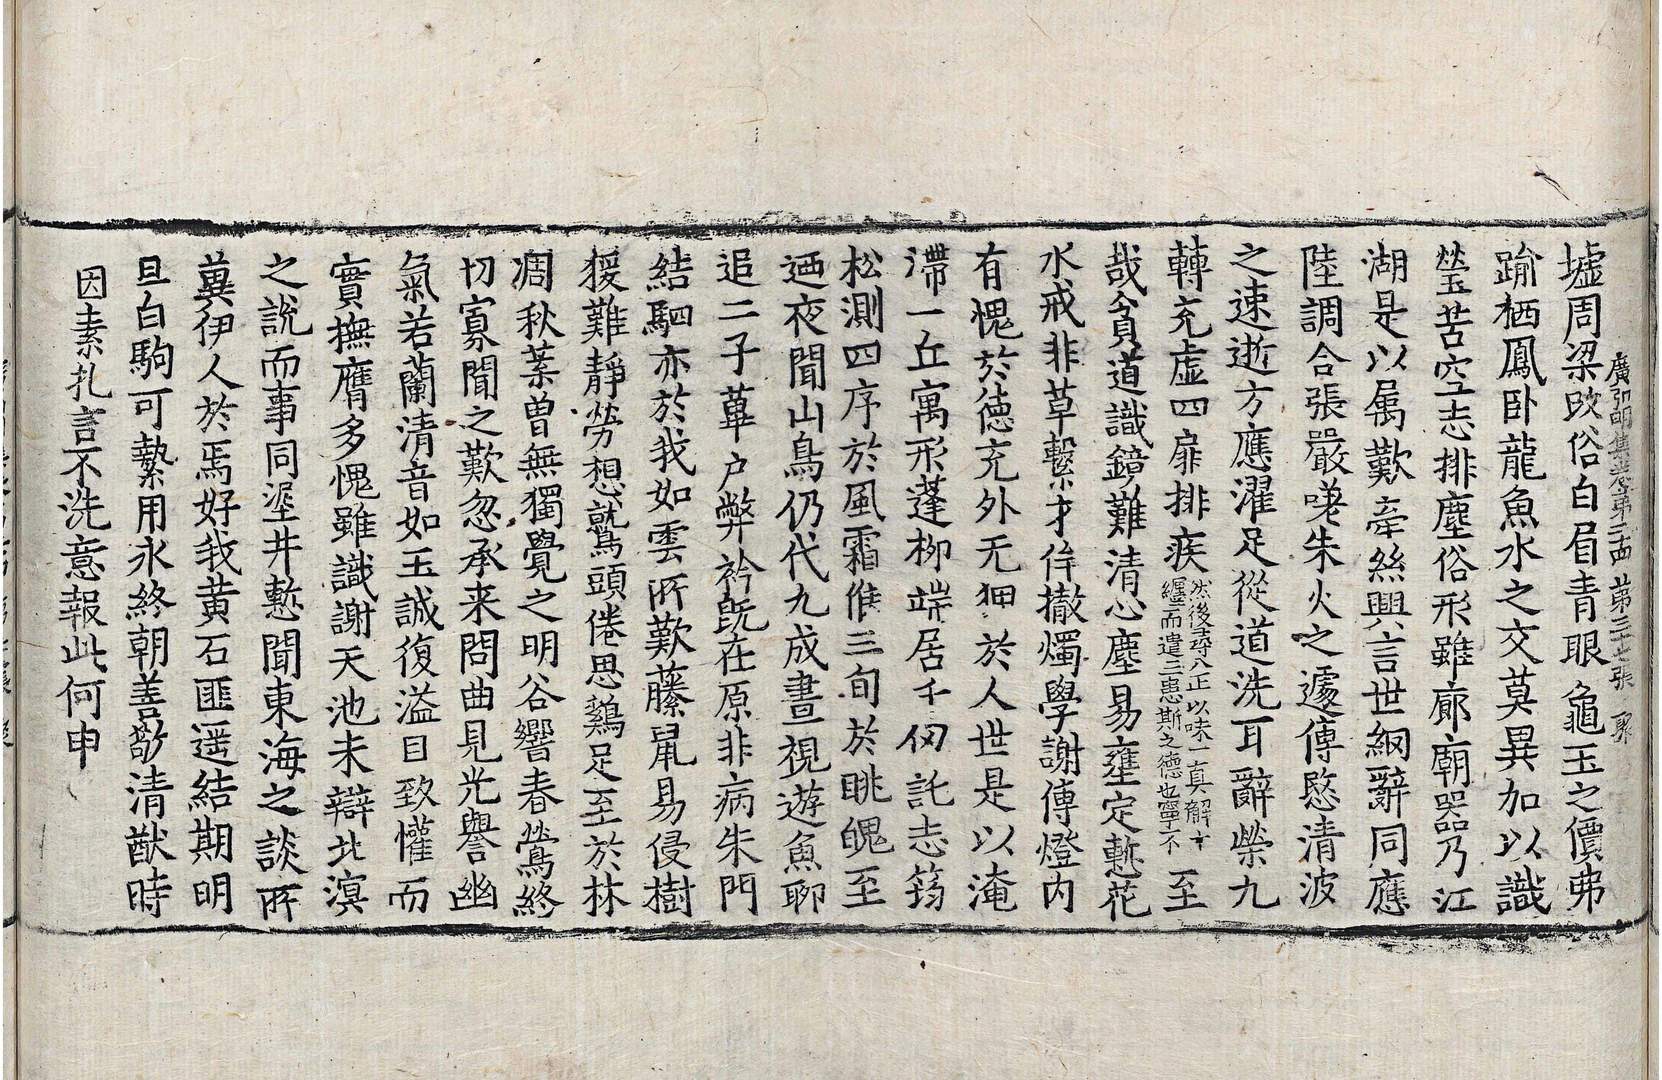 廣弘明集卷第二四 第三七張 聚
墟周梁改俗白眉青眼龜玉之價弗
踰栖鳳卧龍魚水之交莫異加以識
瑩苦空志排塵俗形雖廊廟器乃江
湖是以屬歎牽絲興言世網辭同應
陸調合張嚴嗟朱火之遽傳愍清波
之速逝方應濯足從道洗耳辭榮九
轉充虛四扉排疾然後尋八正以味一真解十纏而遣三患斯之德也寧不至
哉貧道識鏡難清心塵易壅定慙花
水戒非草繫才侔撤燭學謝傳燈内
有愧於德充外无狎於人世是以淹
滯一丘寓形蓬柳端居千仞託志筠
松測四序於風霜候三旬於眺魄至
迺夜聞山鳥仍代九成晝視遊魚聊
追二子蓽户弊衿旣在原非病朱門
結駟亦於我如雲所歎藤鼠易侵樹
猨難靜勞想鷲頭倦思鷄足至於林
凋秋葉曾無獨覺之明谷響春鶯終
切寡聞之歎忽承来問曲見光譽幽
氣若蘭清音如玉誠復溢目致懽而
實撫膺多愧雖識謝天池未辯北溟
之說而事同埳井慙聞東海之談所
冀伊人於焉好我黃石匪遥結期明
旦白駒可縶用永終朝善敬清猷時
因素札言不洗意報此何申